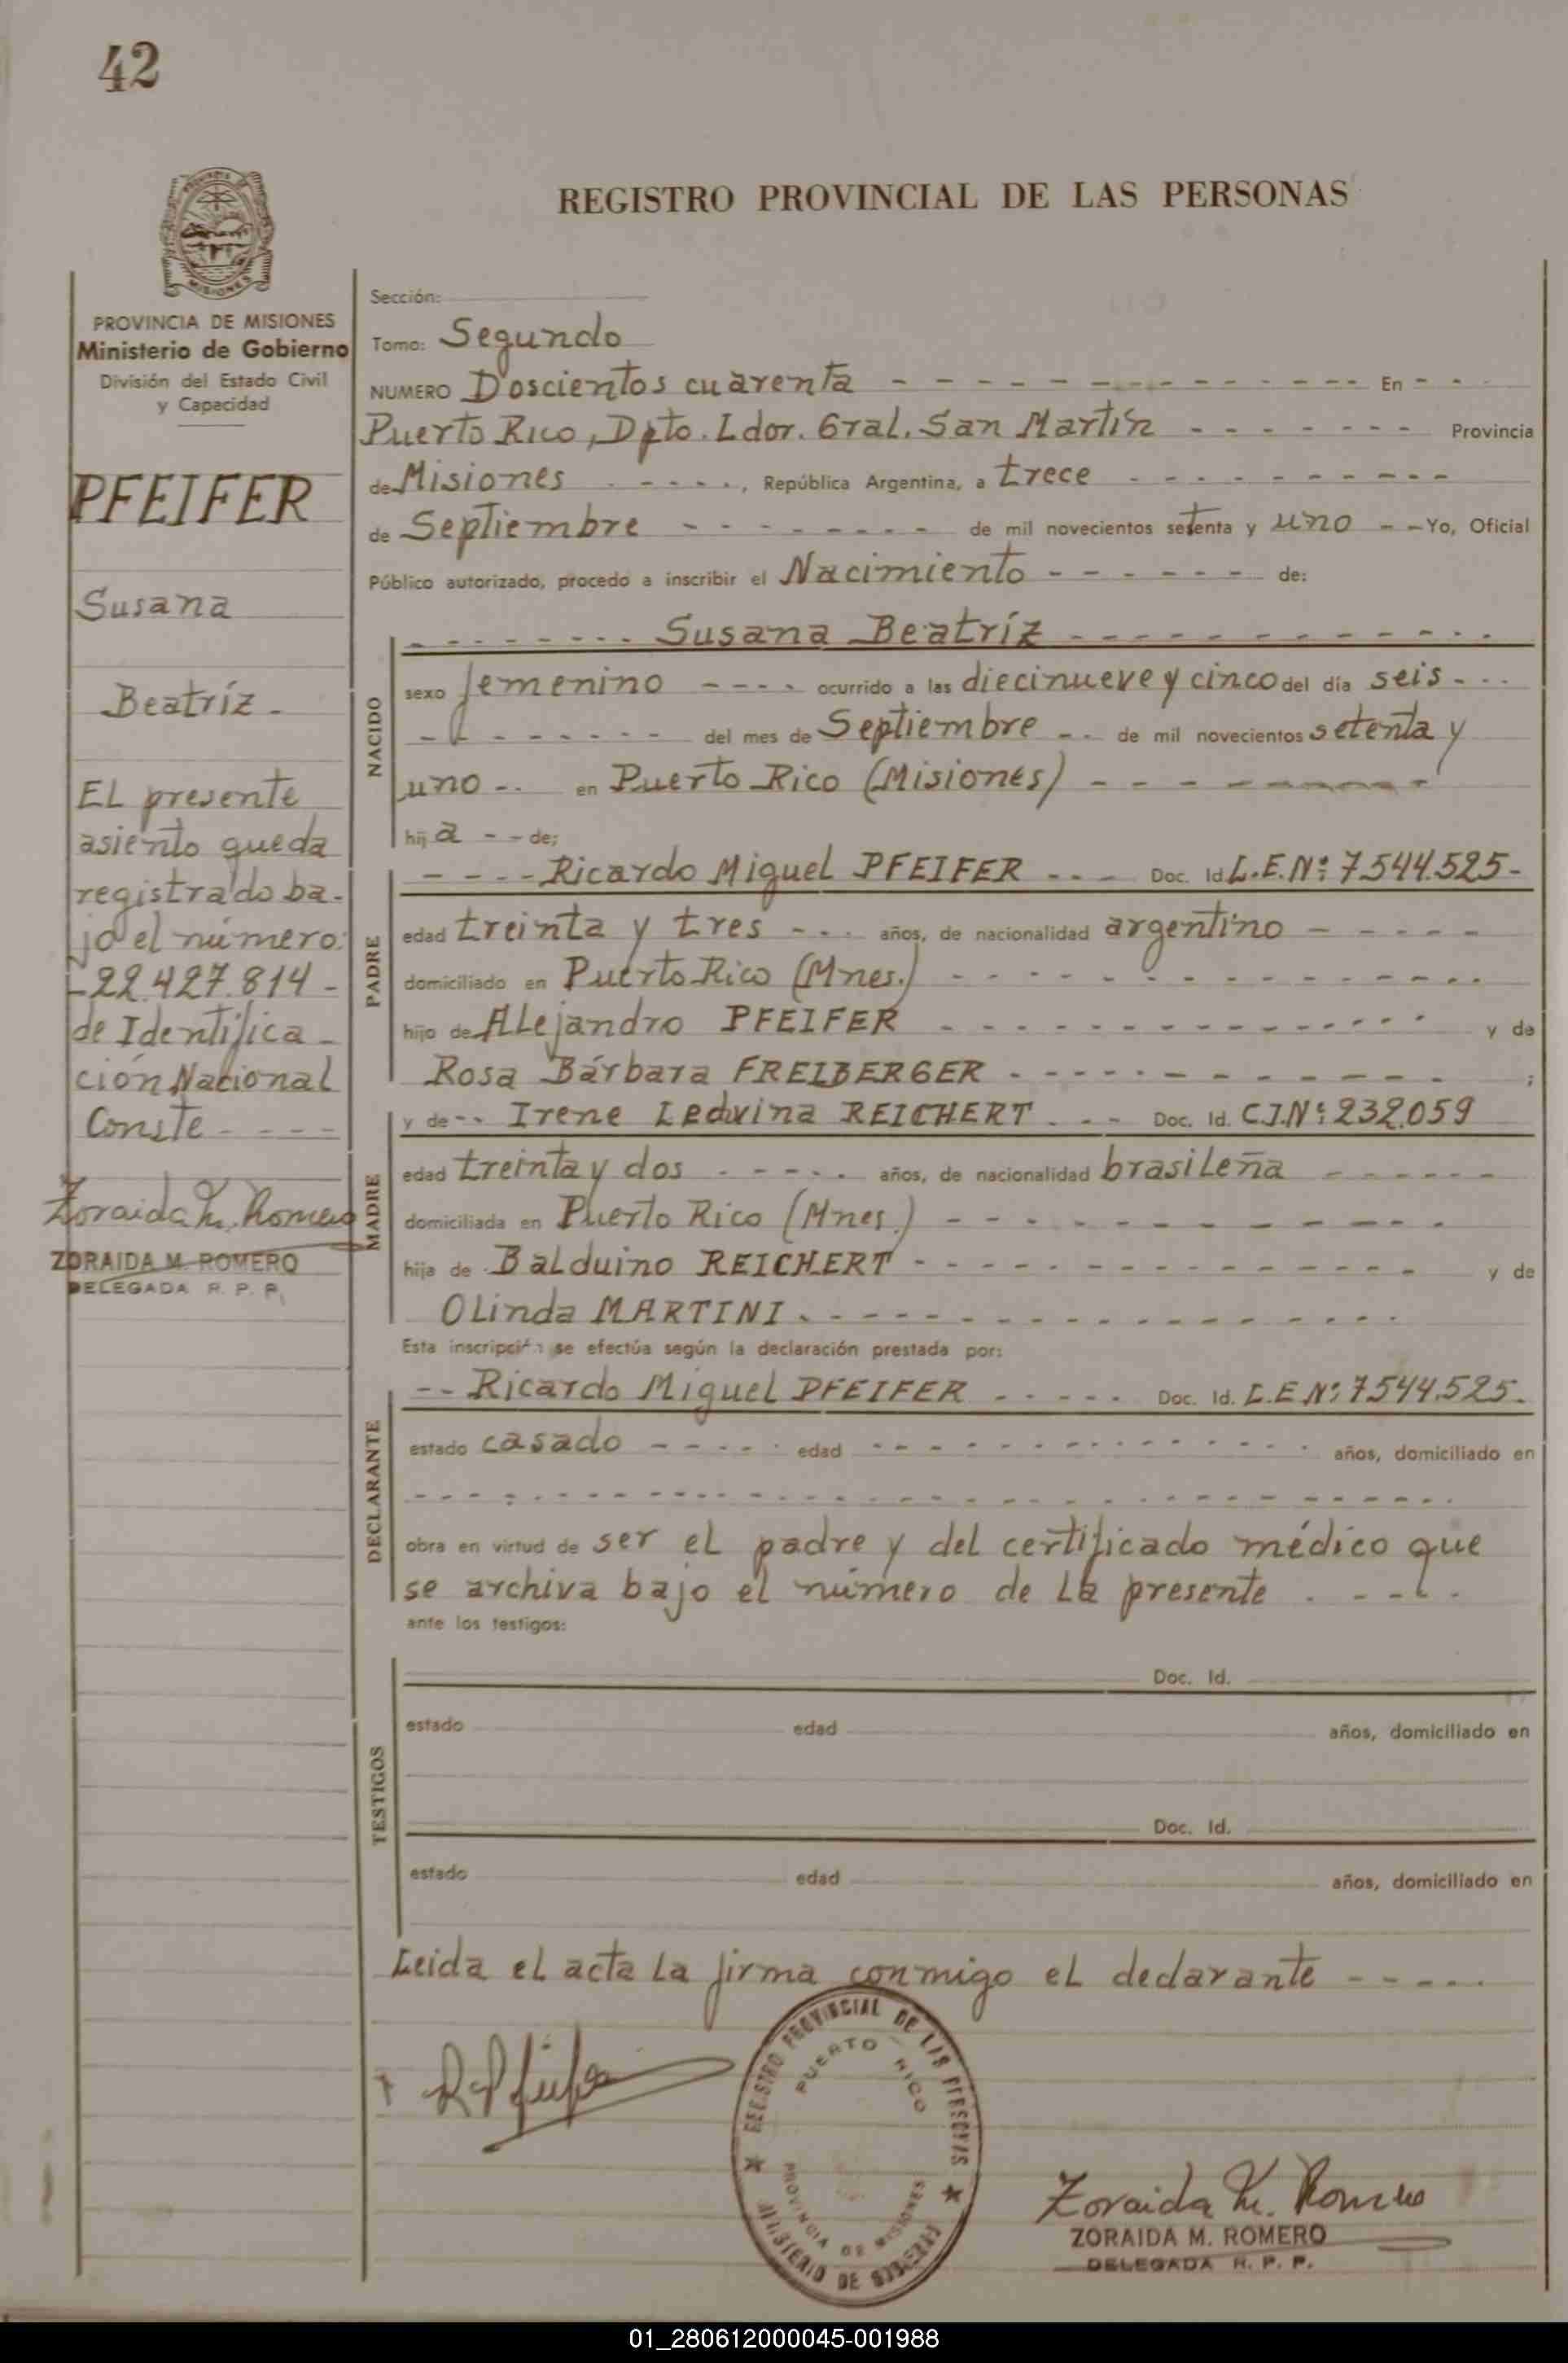 42
REGISTRO PROVINCIAL DE LAS PERSONAS
MISIONES
PROVINCIA DE MISIONES
Ministerio de Gobierno
División del Estado Civil
y Capacidad
PFEIFER
Susana
Beatríz -
EL presente
asiento queda
registrado ba-
jo el número:
-22.427.814-
de Identifica-
ción Nacional
Conste - - - -
Zoraida M. Romero
ZORAIDA M. ROMERO
DELEGADA R. P. P.
Sección:
Tomo: Segundo
NUMERO Doscientos cuarenta - - - - - - - - - - - - En - -
Puerto Rico, Dpto. Ldor. Gral. San Martín - - - - - - - Provincia
de Misiones - - - - -, República Argentina, a trece - - - - - - - - -
de Septiembre - - - - - - - - de mil novecientos setenta y uno - - Yo, Oficial
Público autorizado, procedo a inscribir el Nacimiento - - - - - - - de:
- - - - - - - - Susana Beatríz - - - - - - - - - - - -
NACIDO
sexo femenino - - - - ocurrido a las diecinueve y cinco del día seis - - -
- - - - - - - - del mes de Septiembre - - de mil novecientos setenta y
uno - - en Puerto Rico (Misiones) - - - - - - - - -
hij a - - de;
PADRE
- - - - Ricardo Miguel PFEIFER - - - Doc. Id L.E.Nº: 7.544.525-
edad treinta y tres - - - años, de nacionalidad argentino - - - - -
domiciliado en Puerto Rico (Mnes.) - - - - - - - - - - - - -
hijo de ALejandro PFEIFER - - - - - - - - - - - - y de
Rosa Bárbara FREIBERGER - - - - - - - - - - - - ;
MADRE
y de - - Irene Ledvina REICHERT - - - Doc. Id. C.I.Nº: 232.059
edad treinta y dos - - - - - años, de nacionalidad brasileña - - - - - -
domiciliada en Puerto Rico (Mnes.) - - - - - - - - - - -
hija de Balduino REICHERT - - - - - - - - - - - - y de
OLinda MARTINI - - - - - - - - - - - - - - - -
Esta inscripción se efectúa según la declaración prestada por:
DECLARANTE
- - Ricardo Miguel PFEIFER - - - - - Doc. Id. L.E Nº: 7.544.525.
estado casado - - - - - edad - - - - - - - - - - - - - años, domiciliado en
- - - - - - - - - - - - - - - - - - - - - - - - - - - -
obra en virtud de ser el padre y del certificado médico que
se archiva bajo el número de la presente - - - - -
ante los testigos:
TESTIGOS
Doc. Id.
estado edad años, domiciliado en
Doc. Id.
estado edad años, domiciliado en
Leida el acta la firma conmigo el declarante - - - - -
REGISTRO PROVINCIAL DE LAS PERSONAS
PUERTO RICO
PROVINCIA DE MISIONES
MINISTERIO DE GOBIERNO
Zoraida M. Romero
ZORAIDA M. ROMERO
DELEGADA R. P. P.
01_280612000045-001988